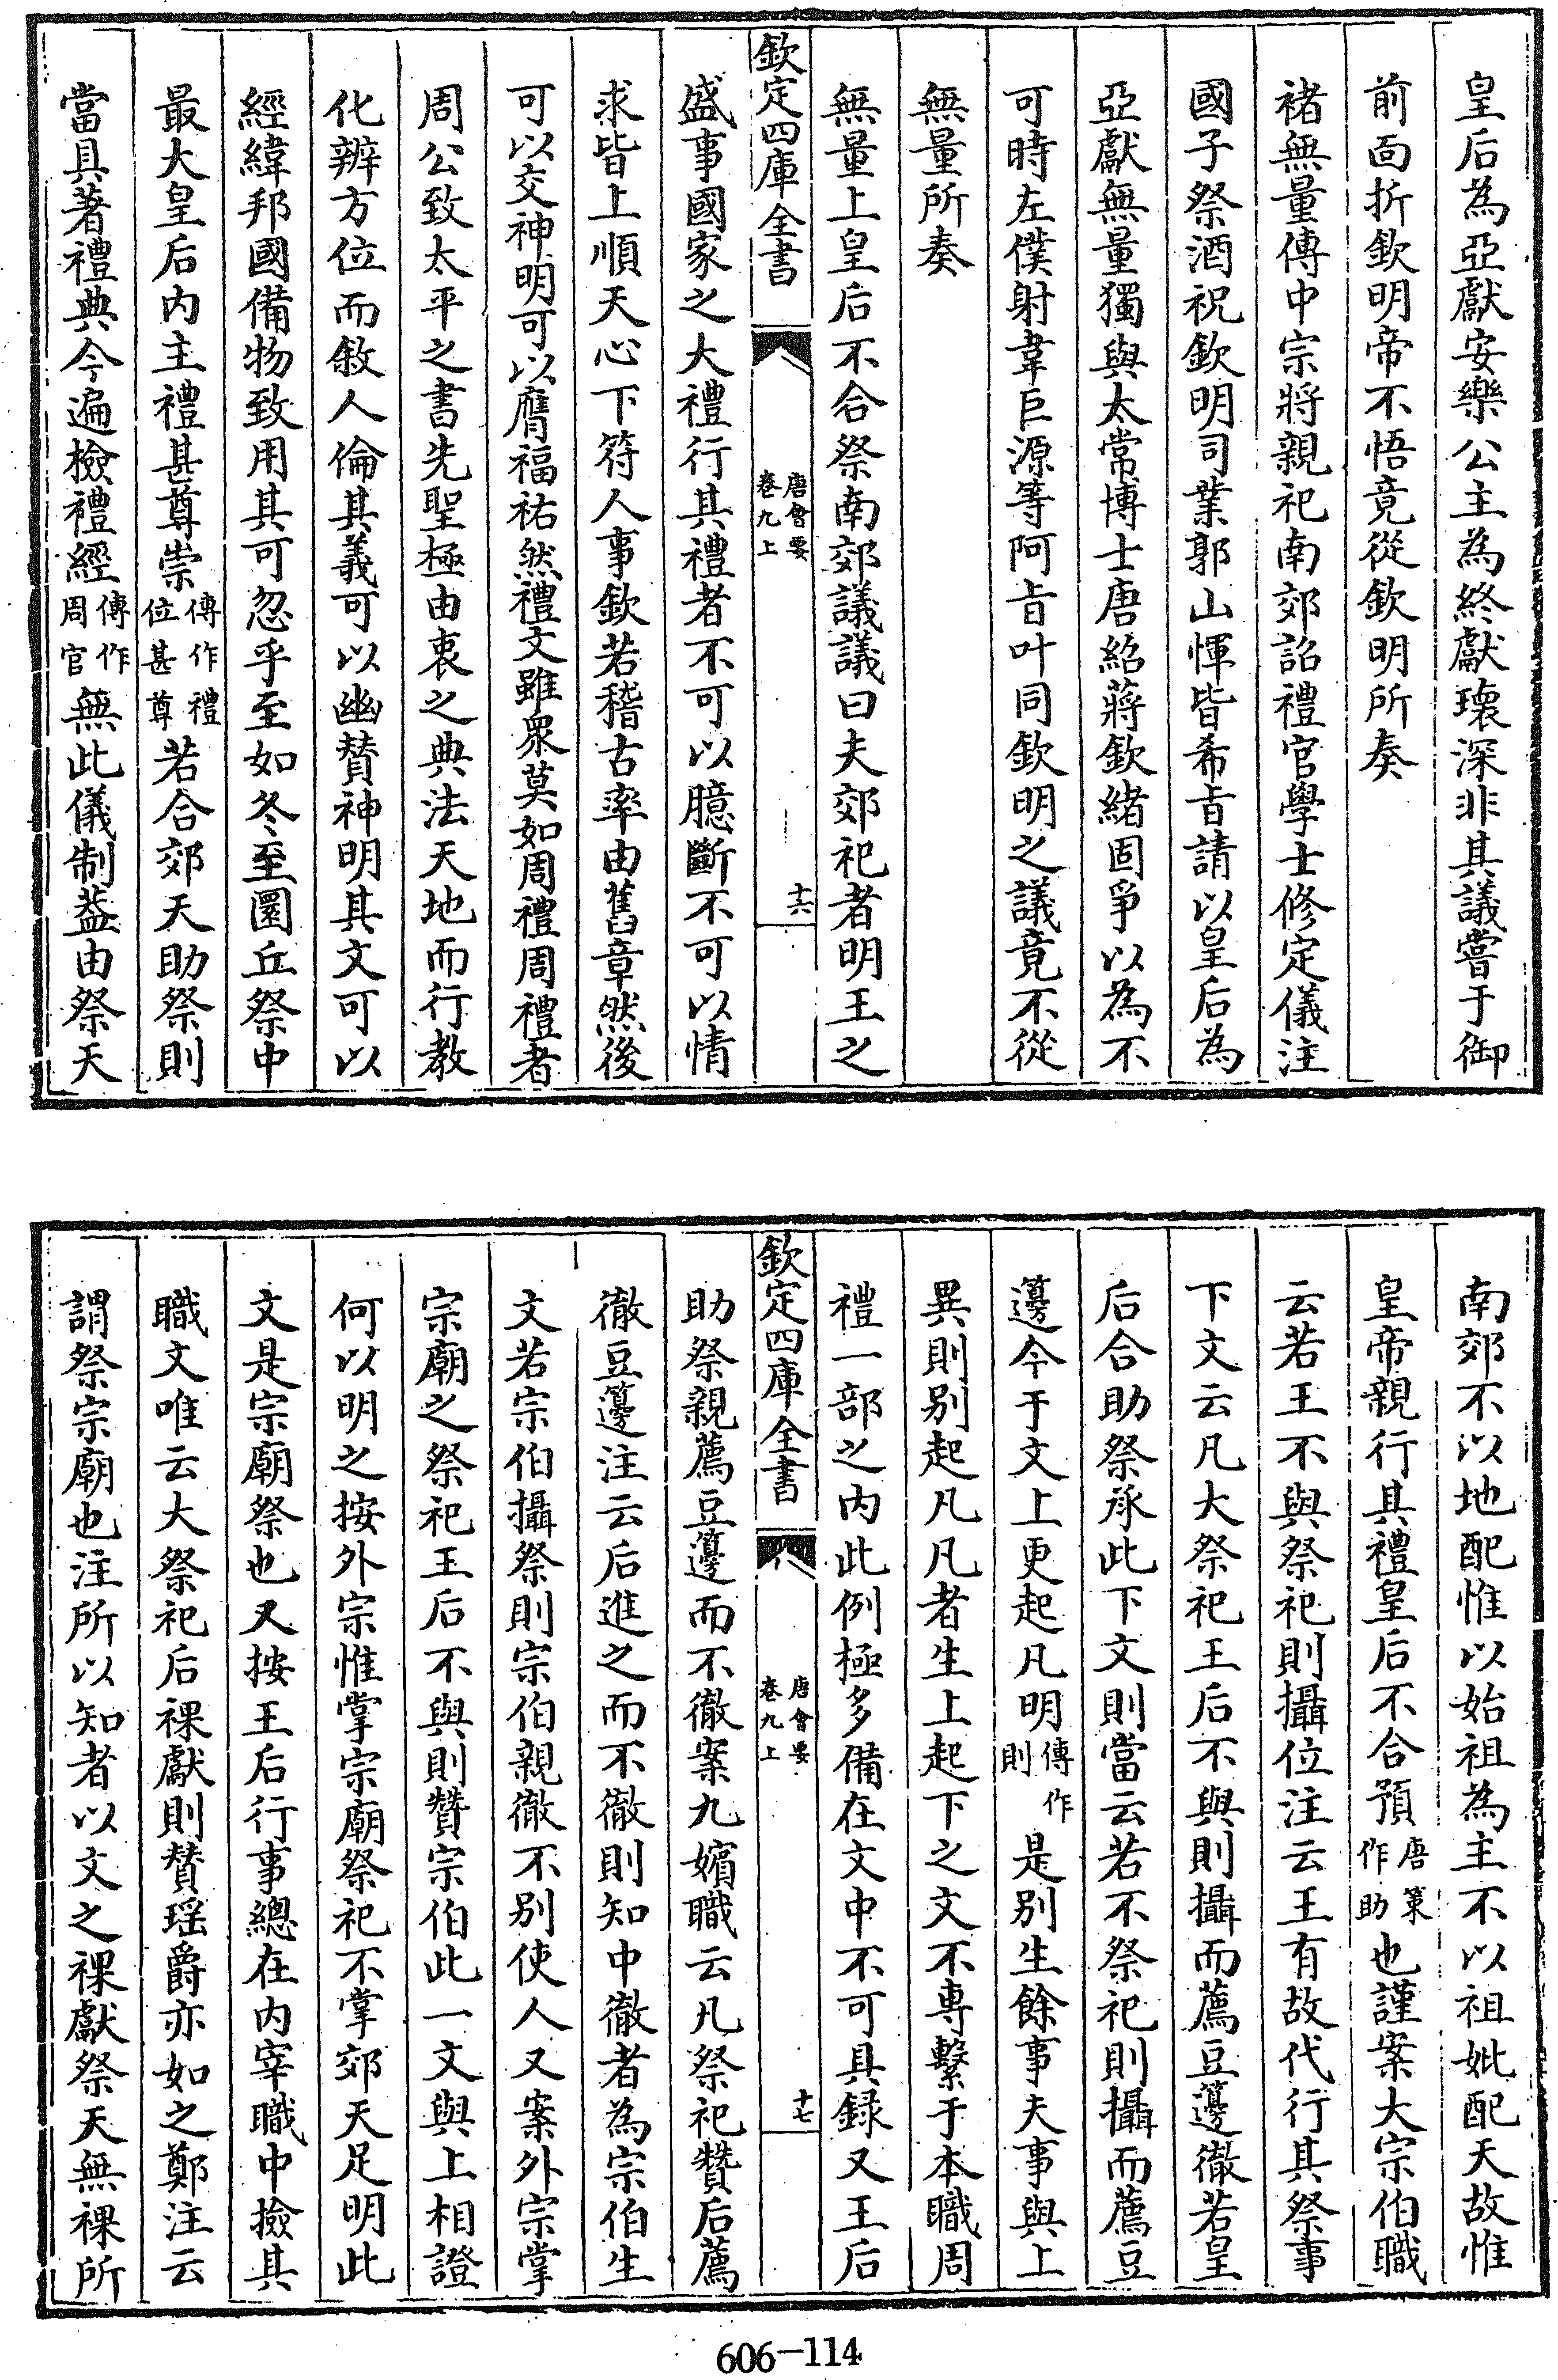 皇后為亞獻安樂公主為終獻瓌深非其議嘗于御
前面折欽明帝不悟竟從欽明所奏
禇無量傳中宗將親祀南郊詔禮官學士修定儀注
國子祭酒祝欽明司業郭山惲皆希旨請以皇后為
亞獻無量獨與太常博士唐紹蔣欽緒固爭以為不
可時左僕射韋巨源等阿旨叶同欽明之議竟不從
無量所奏
無量上皇后不合祭南郊議議曰夫郊祀者明王之
欽定四庫全書
唐會要
卷九上
十六
盛事國家之大禮行其禮者不可以臆斷不可以情
求皆上順天心下符人事欽若稽古率由舊章然後
可以交神明可以膺福祐然禮文雖衆莫如周禮周禮者
周公致太平之書先聖極由衷之典法天地而行教
化辨方位而敘人倫其義可以幽賛神明其文可以
經緯邦國備物致用其可忽乎至如冬至圜丘祭中
最大皇后内主禮甚尊崇傳作禮位甚尊若合郊天助祭則
當具著禮典今遍檢禮經傳作周官無此儀制葢由祭天
南郊不以地配惟以始祖為主不以祖妣配天故惟
皇帝親行其禮皇后不合預唐策作助也謹案大宗伯職
云若王不與祭祀則攝位注云王有故代行其祭事
下文云凡大祭祀王后不與則攝而薦豆籩徹若皇
后合助祭承此下文則當云若不祭祀則攝而薦豆
籩今于文上更起凡明傳作則是别生餘事夫事與上
異則别起凡凡者生上起下之文不專繫于本職周
禮一部之内此例極多備在文中不可具録又王后
欽定四庫全書
唐會要
卷九上
十七
助祭親薦豆籩而不徹案九嬪職云凡祭祀贊后薦
徹豆籩注云后進之而不徹則知中徹者為宗伯生
文若宗伯攝祭則宗伯親徹不别使人又案外宗掌
宗廟之祭祀王后不與則贊宗伯此一文與上相證
何以明之按外宗惟掌宗廟祭祀不掌郊天足明此
文是宗廟祭也又按王后行事總在内宰職中撿其
職文唯云大祭祀后祼獻則賛瑶爵亦如之鄭注云
謂祭宗廟也注所以知者以文之祼獻祭天無祼所
606-114